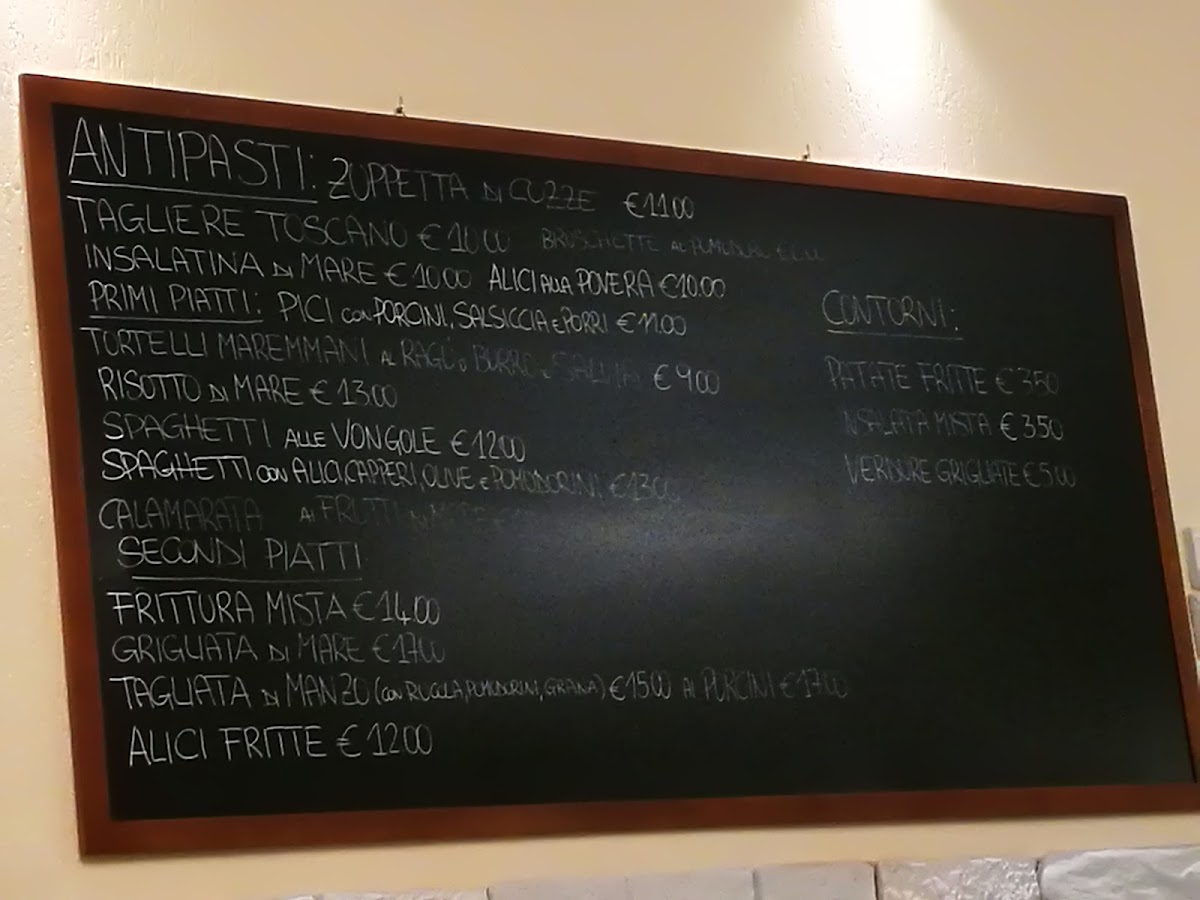 ANTIPASTI: ZUPPETTA DI COZZE €11.00
TAGLIERE TOSCANO €10.00 BRUSCHETTE AL POMODORO
INSALATINA DI MARE €10.00 ALICI ALLA POVERA €10.00
PRIMI PIATTI: PICI CON PORCINI, SALSICCIA E PORRI €11.00
TORTELLI MAREMMANI AL RAGÙ O BURRO E SALVIA €9.00
RISOTTO DI MARE €13.00
SPAGHETTI ALLE VONGOLE €12.00
SPAGHETTI CON ALICI, CAPPERI, OLIVE E POMODORINI, €13.00
CALAMARATA AI FRUTTI DI MARE
SECONDI PIATTI
FRITTURA MISTA €14.00
GRIGLIATA DI MARE €17.00
TAGLIATA DI MANZO (CON RUCOLA, POMODORINI, GRANA) €15.00 AI PORCINI €17.00
ALICI FRITTE €12.00
CONTORNI:
PATATE FRITTE €3.50
INSALATA MISTA €3.50
VERDURE GRIGLIATE €5.00